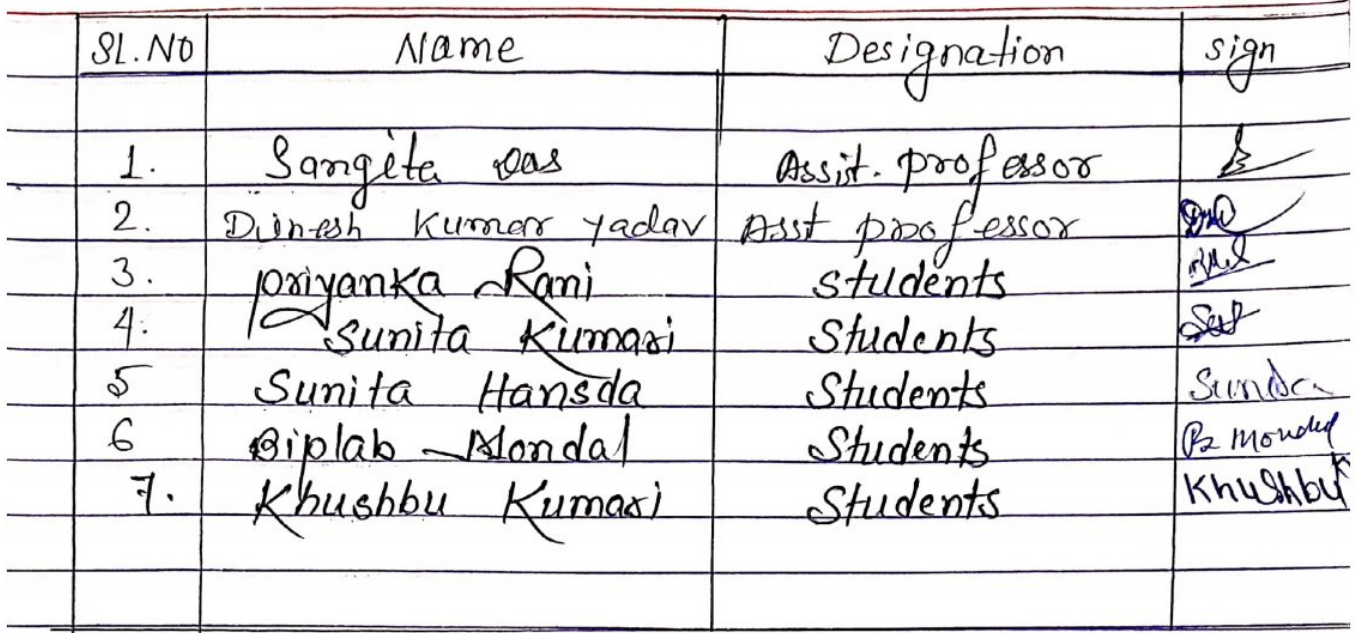 SL.NO Name Designation sign
1. Sangita Das Assit. professor
2. Dinesh Kumar Yadav Asst professor
3. priyanka Rani Students
4. Sunita Kumari Students
5 Sunita Hansda Students
6 Biplab Mondal Students B Mondal
7. Khushbu Kumari Students Khushbu